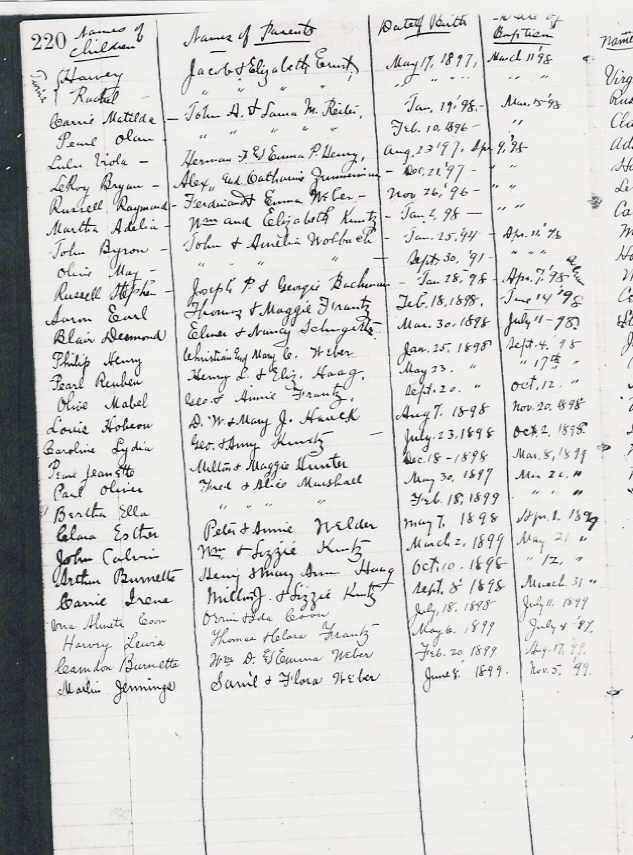 220 Names of Children Names of Parents Date of Birth Date of Baptism
Harvey Jacob & Elizabeth May 17, 1897, March 11 '98
Rachel " " " " " " " " "
Carrie Matilda – John H. & M. Jan. 19, '98 – Mar. 15 '98
Pearl " " " " " Feb. 10, 1896 – "
Lulu Viola – Herman F. & Emma P. Henry, Aug. 23 '97, Apr. 9, '98
LeRoy Bryan – Alex, and Catharine Zimmerman – Dec. 22, '97 – " "
Russell Raymond – Ferdinand & Emma Weber – Nov. 26, '96 – " "
Martha Adelia – Wm and Elizabeth Kuntz – Jan. 2, 98 – " "
John Byron – John & Amelia Wolbach – Jan. 25, 94 – Apr. '98
Olive May – " " " " – Sept. 30, '91 – " " "
Russell Stephen – Joseph P. & Georgie Bachman – Jan. 28, '98 – Apr. 7, '98
Aaron Earl Thomas & Maggie Frantz Feb. 18, 1898. June 14 '98
Blair Desmond Elmer & Nancy Mar. 30, 1898 July 11 – 98.
Philip Henry Christian and Mary C. Weber Jan. 25, 1898 Sept. 4, '98
Pearl Reuben Henry L. & Eliz. Haag. May 23. " " 17th "
Olive Mabel Geo. & Annie Frantz, Sept. 20. " Oct. 12, "
Louie Hobson D. W. & Mary J. Hauck Aug 7, 1898 Nov. 20, 1898
Caroline Lydia Geo. & Amy Kuntz – July. 23, 1898 Oct. 2, 1898.
Pearl Jeanette Milton & Maggie Hunter Dec. 18 – 1898 Mar. 8, 1899
Paul Oliver Fred & Alice Marshall May 30, 1897 Mar 26. "
Bertha Ella " " " " Feb. 18, 1899 " " "
Clara Esther Peter & Annie Welder May 7, 1898 Apr. 1. 1899
John Calvin Wm. & Lizzie Kuntz March 2, 1899 May 21 "
Arthur Burnette Henry & Mary Ann Haag Oct. 10. 1898 " 12, "
Carrie Irene Milton J. & Lizzie Kuntz Sept. 8 1898 March 31 "
Almeta Coon Orrin & Ida Coon July. 18. 1898 July 11. 1899
Harvy Lewis Thomas & Clara Frantz May 6. 1899 July
Camdon Burnette Wm. D. & Emma Weber Feb. 20 1899 Aug. 17, 99.
Marlin Jennings & Flora Weber June 8, 1899. Nov. 5. '99.